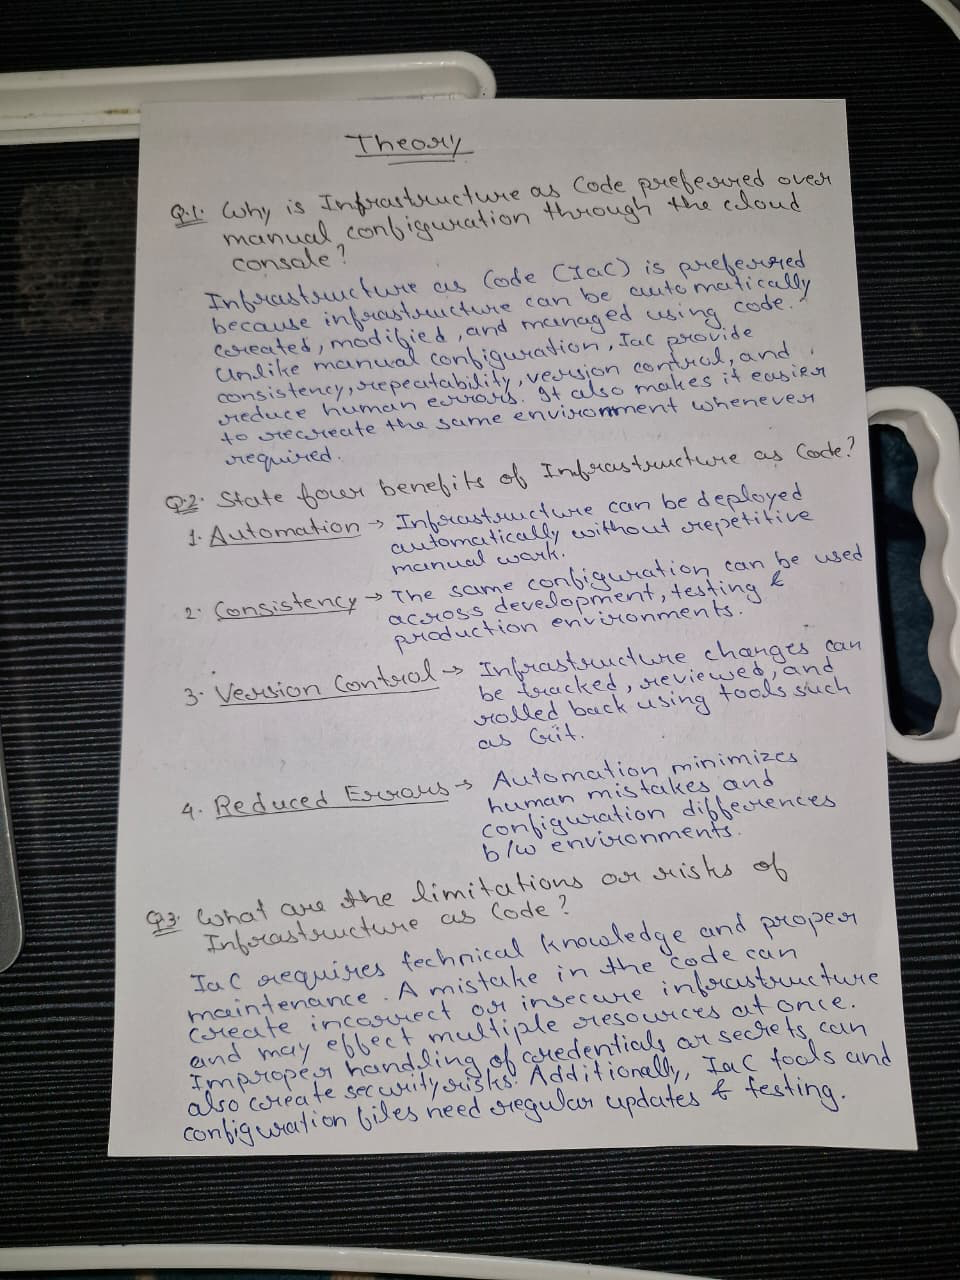 Theory
Q.1. Why is Infrastructure as Code preferred over
manual configuration through the cloud
console?
Infrastructure as Code (IaC) is preferred
because infrastructure can be automatically
created, modified, and managed using code.
Unlike manual configuration, IaC provide
consistency, repeatability, version control, and
reduce human errors. It also makes it easier
to recreate the same environment whenever
required.
Q.2. State four benefits of Infrastructure as Code?
1. Automation → Infrastructure can be deployed
automatically without repetitive
manual work.
2. Consistency → The same configuration can be used
across development, testing &
production environments.
3. Version Control → Infrastructure changes can
be tracked, reviewed, and
rolled back using tools such
as Git.
4. Reduced Errors → Automation minimizes
human mistakes and
configuration differences
b/w environments.
Q3. What are the limitations or risks of
Infrastructure as Code?
IaC requires technical knowledge and proper
maintenance. A mistake in the code can
create incorrect or insecure infrastructure
and may effect multiple resources at once.
Improper handling of credentials or secrets can
also create security risks. Additionally, IaC tools and
configuration files need regular updates & testing.